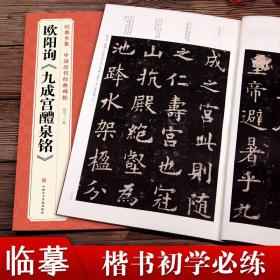 皇帝避暑乎九
成之宮此則隨
之仁壽宮也冠
山抗殿絕壑為
池跨水架楹分
经典全集·中国历代经典碑帖
欧阳询《九成宫醴泉铭》
临摹
楷书初学必练